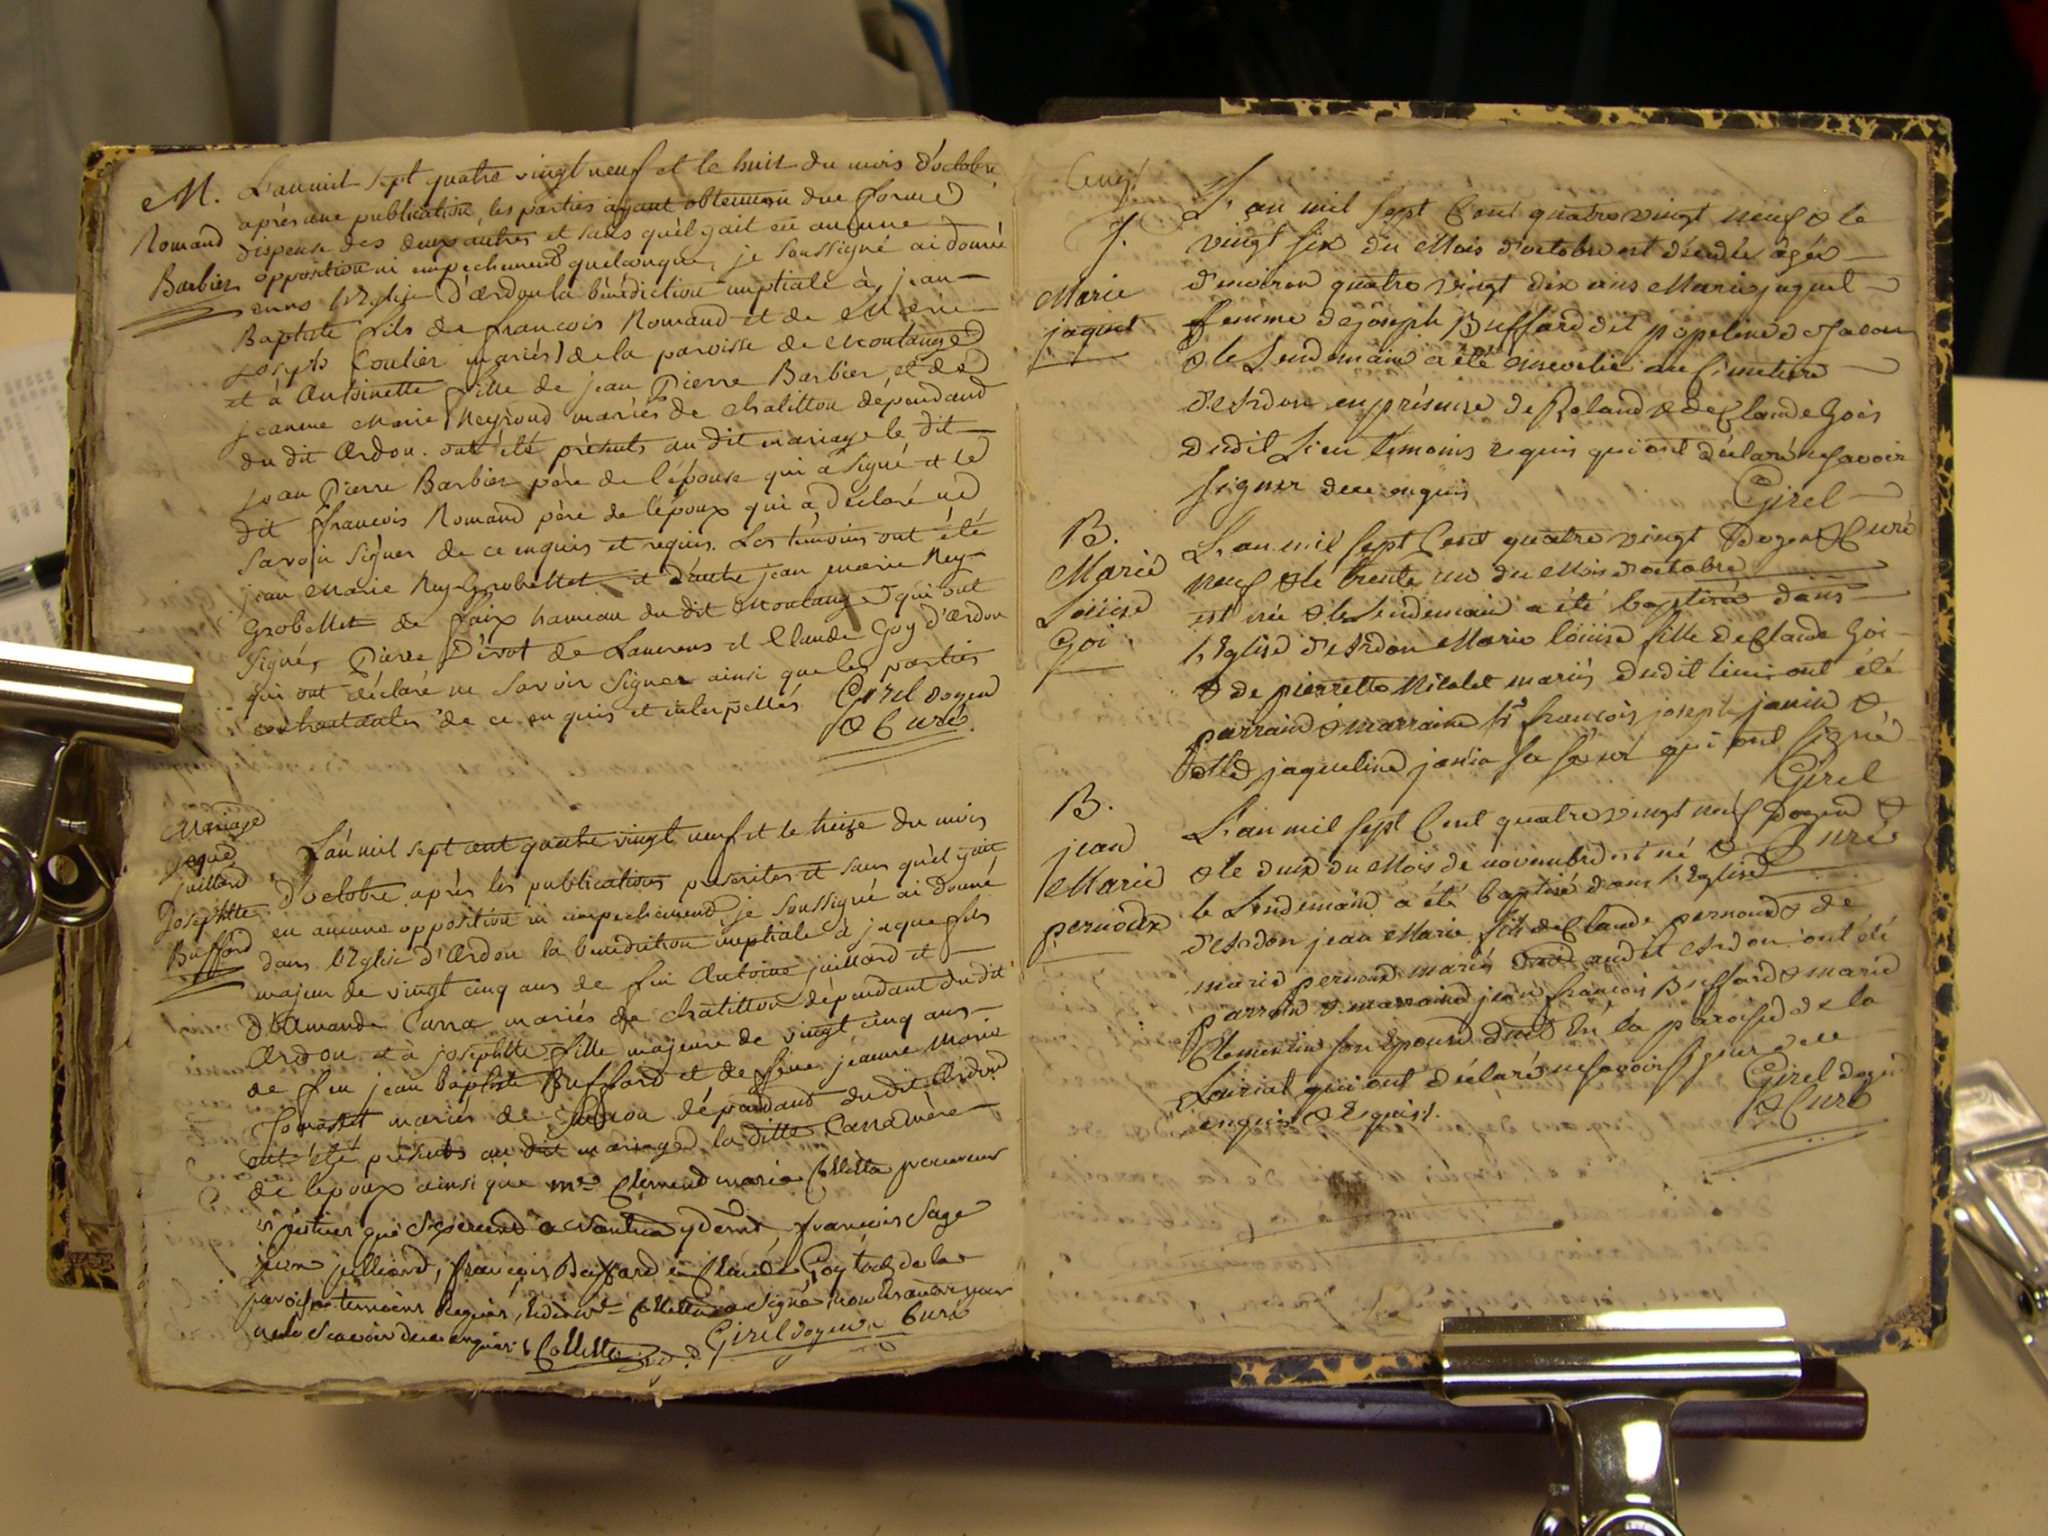 M. L'an mil sept quatre vingt neuf et le huit du mois d'octobre
après une publication, les parties ayant obtenu en due forme
Romand dispense des deux autres et sans qu'il y ait eu aucune
Barbier opposition ni empechement quelconque, je soussigné ai donné
dans l'Eglise d'Ardon la bénédiction nuptiale à jean
Baptiste fils de françois Romand et de Marie
joseph Coutier mariés de la paroisse de Montange
et à Antoinette fille de jean Pierre Barbier et de
jeanne Marie Neyroud mariés de chatillon dépendand
du dit Ardon. ont été présents au dit mariage le dit
jean Pierre Barbier père de l'épouse qui a signé et le
dit françois Romand père de l'époux qui a déclaré ne
savoir signer de ce enquis et requis. Les témoins ont été
jean Marie Rey Grobellet et d'autre jean marie Rey
Grobellet de faix hameau du dit Montange qui ont
signés, Pierre Dérot de Lancrens et Claude Goy d'Ardon
qui ont déclaré ne savoir signer ainsi que les parties
contractantes de ce enquis et interpellés Girel doyen
& Curé
Mariage
jaque
juillard
Josephtte
Buffard
L'an mil sept cent quatre vingt neuf et le treize du mois
d'octobre après les publications prescrites et sans qu'il y ait
eu aucune opposition ni empechement, je soussigné ai donné
dans l'Eglise d'Ardon la bénédiction nuptiale à jaque fils
majeur de vingt cinq ans de feu Antoine juillard et
d'Amande Curra mariés de chatillon dépendant du dit
Ardon et à josephtte fille majeure de vingt cinq ans
de feu jean baptiste Buffard et de feue jeanne Marie
mariés de dépendand du dit Ardon
ont été présents au dit mariage la ditte
de l'époux ainsi que mre Clément marie Colletta procureur
françois Sage
julliard, françois Buffard & Claude Goy tous de la
paroisse témoins Requis, Colletta a Signé non les autres pour
ne le Scavoir de ce enquis Colletta Girel doyen & Curé
J.
Marie
jaquet
L'an mil sept Cent quatre vingt neuf & le
vingt six du Mois d'octobre est décédée agée
d'environ quatre vingt dix ans Marie jaquet
femme de joseph Buffard dit popeline
& le Lendemain a été ensevelie au Cimetiere
d'Ardon en présence de Roland & de Claude Gois
dudit Lieu témoins requis qui ont déclaré ne savoir
signer de ce enquis Girel
Doyen & Curé
B.
Marie
Loüise
Goi
L'an mil sept Cent quatre vingt
neuf & le trente un du Mois d'octobre
est née & le Lendemain a été baptisée dans
l'Eglise d'Ardon Marie loüise fille de Claude Goi
& de pierrette Nicolet mariés dudit lieu, ont été
parrain & marraine Sr françois joseph janin &
Delle jaqueline janin sa sœur qui ont signé
Girel
Doyen &
Curé
B.
jean
Marie
pernoux
L'an mil sept Cent quatre vingt neuf
& le deux du Mois de novembre est né &
le Lendemain a été baptisé dans l'Eglise
d'Ardon jean Marie fils de Claude pernoud & de
marie pernoud mariés audit Ardon, ont été
parrain & marraine jean françois Buffard & marie
Clementin son Epouse de la paroisse de la
qui ont déclaré ne savoir signer de ce
enquis & requis. Girel doyen
& Curé